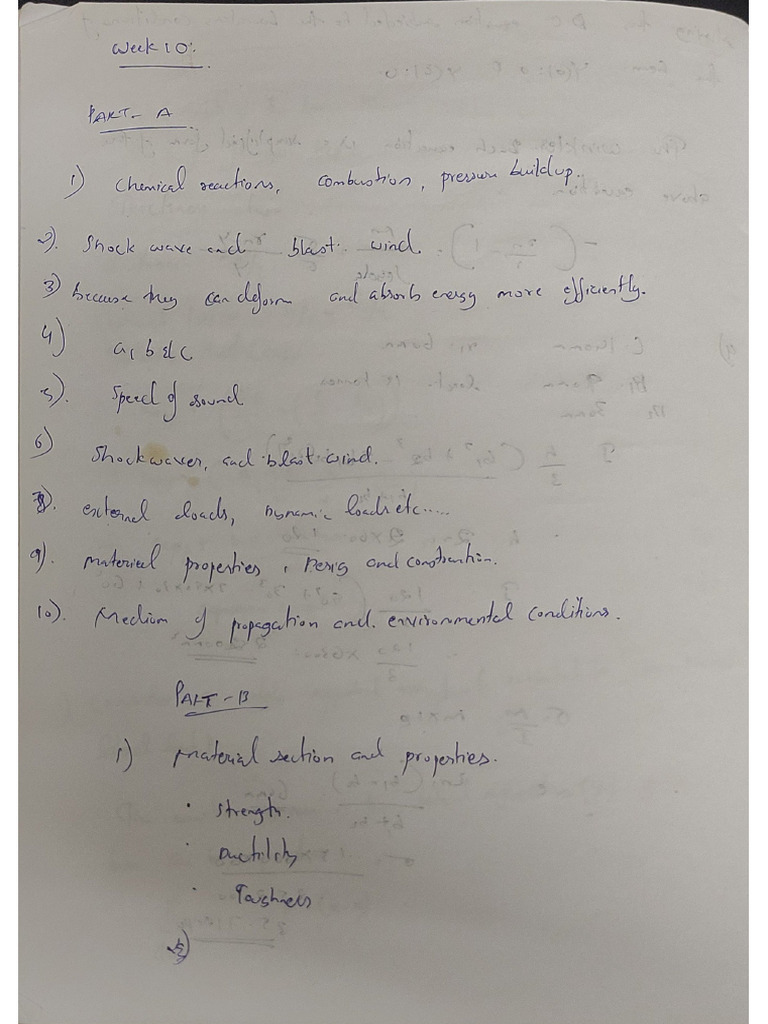 Week 10:
PART - A
1) Chemical reactions, combustion, pressure buildup.
2). Shock wave and blast wind.
3) because they can deform and absorb energy more efficiently.
4) a, b & c
5). Speed of sound
6) Shockwaves, and blast wind.
8). external loads, Dynamic loads etc.....
9). material properties, and construction.
10). Medium of propagation and environmental conditions.
PART - B
1) material section and properties.
· Strength.
· Ductility
· Toughness
2)